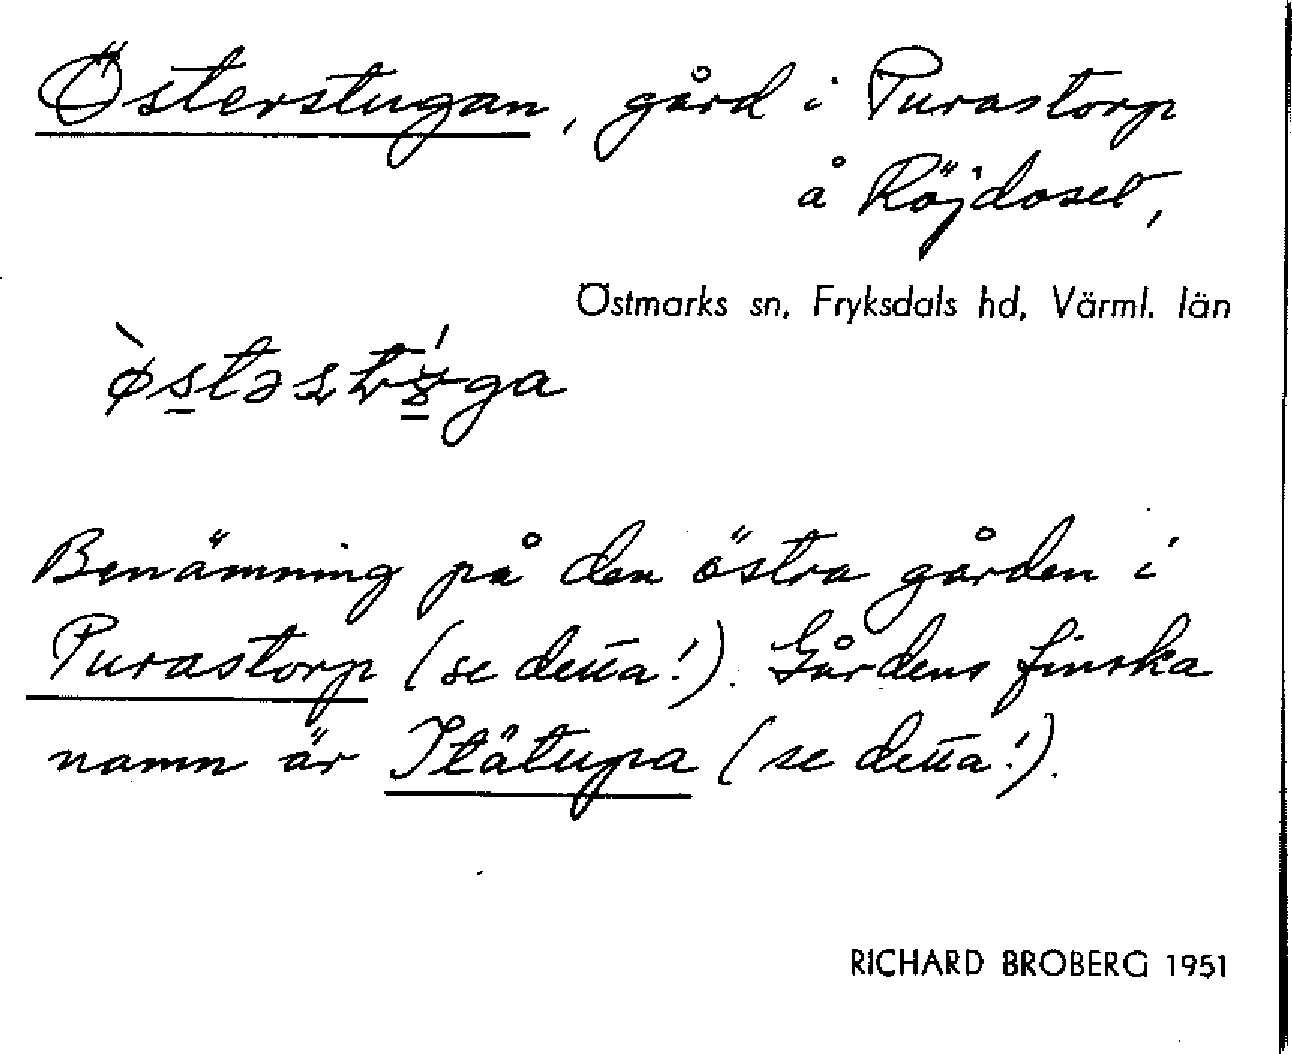 Österstugan, gård i Purastorp
å Röjdoset,
Östmarks sn, Fryksdals hd, Värml. län
Benämning på den östra gården i
Purastorp (se detta!). Gårdens finska
namn är Itätupa (se detta!).
RICHARD BROBERG 1951